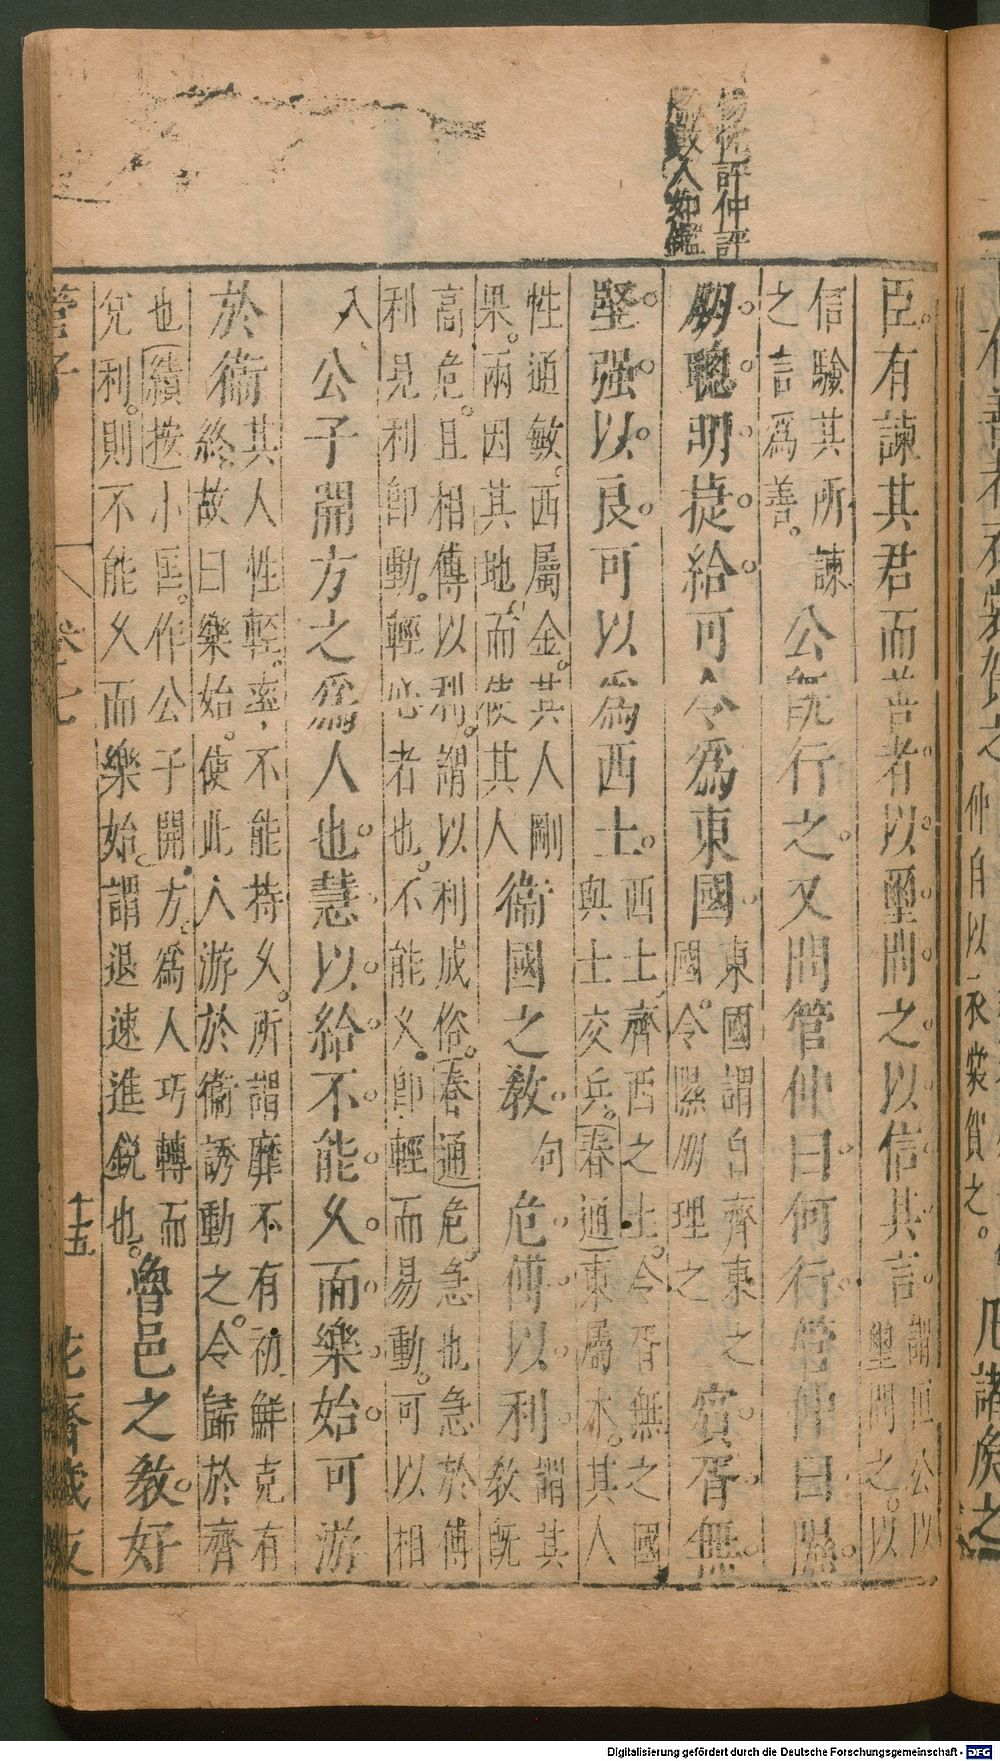 評仲評
數人如鑑
臣有諫其君而善者以璽問之以信其言謂桓公以璽問之以
信驗其所諫之言爲善公既行之又問管仲曰何行管仲曰隰
朋聰明捷給可令爲東國東國謂自齊東之國令隰朋理之賓胥無
堅强以良可以爲西土西土齊西之土令胥無之國與士交兵春通東屬木其人
性通敏西屬金其人剛果兩因其地而使其人衞國之教句危傅以利謂其教既
高危且相傅以利謂以利成俗春通危急也急於傅利見利卽動輕恣者也不能久卽輕而易動可以相
入公子開方之爲人也慧以給不能久而樂始可游
於衞其人性輕率不能持久所謂靡不有初鮮克有終故曰樂始使此人游於衞誘動之令歸於齊
也續按小匡作公子開方爲人巧轉而兊利則不能久而樂始謂退速進銳也魯邑之教好
管子
卷七
十五
花齋藏板
仲自以衣裳賀之
凡諸侯之
Digitalisierung gefördert durch die Deutsche Forschungsgemeinschaft - DFG